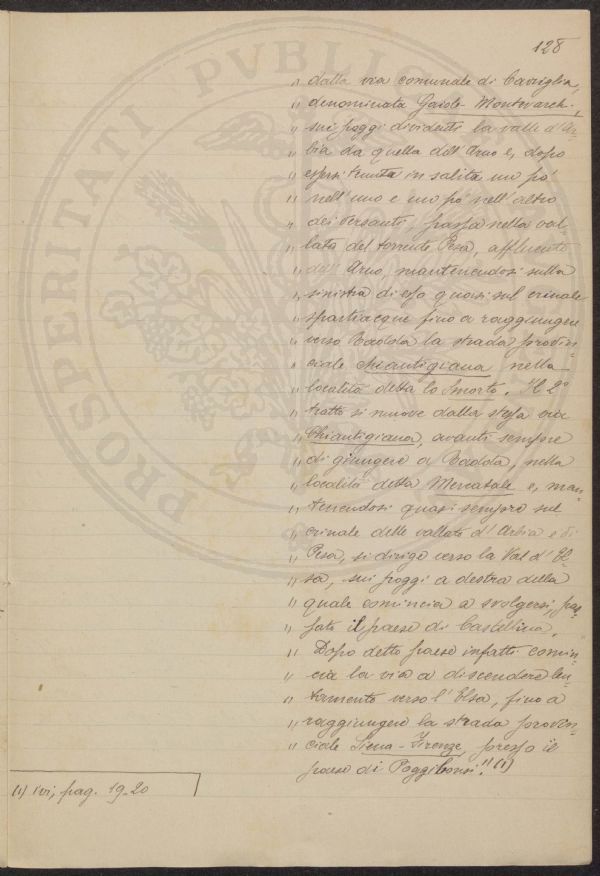 128
" dalla via comunale di Cavriglia,
" denominata Gaiole-Montevarchi,
" sui poggi dividenti la valle d'Ar-
" bia da quella dell'Arno e, dopo
" essersi tenuta in salita un pò
" nell'uno e un pò nell'altro
" dei versanti, passa nella val-
" lata del torrente Pesa, affluente
" dell'Arno, mantenendosi sulla
" sinistra di essa quasi sul crinale
" spartiacque fino a raggiungere
" verso Radda la strada provin-
" ciale Chiantigiana nella
" località detta lo Smorto. Il 2°
" tratto si muove dalla stessa via
" Chiantigiana, avanti sempre
" di giungere a Radda, nella
" località detta Mercatale e, man-
" tenendosi quasi sempre sul
" crinale delle vallate d'Arbia e di
" Pesa, si dirige verso la Val d'El-
" sa, sui poggi a destra della
" quale comincia a svolgersi, pas-
" sato il paese di Castellina.
" Dopo detto paese infatti comin-
" cia la via a discendere len-
" tamente verso l'Elsa, fino a
" raggiungere la strada provin-
" ciale Siena-Firenze, presso il
paese di Poggibonsi." (1)
(1) Ivi, pag. 19-20
PROSPERITATI PUBLIC